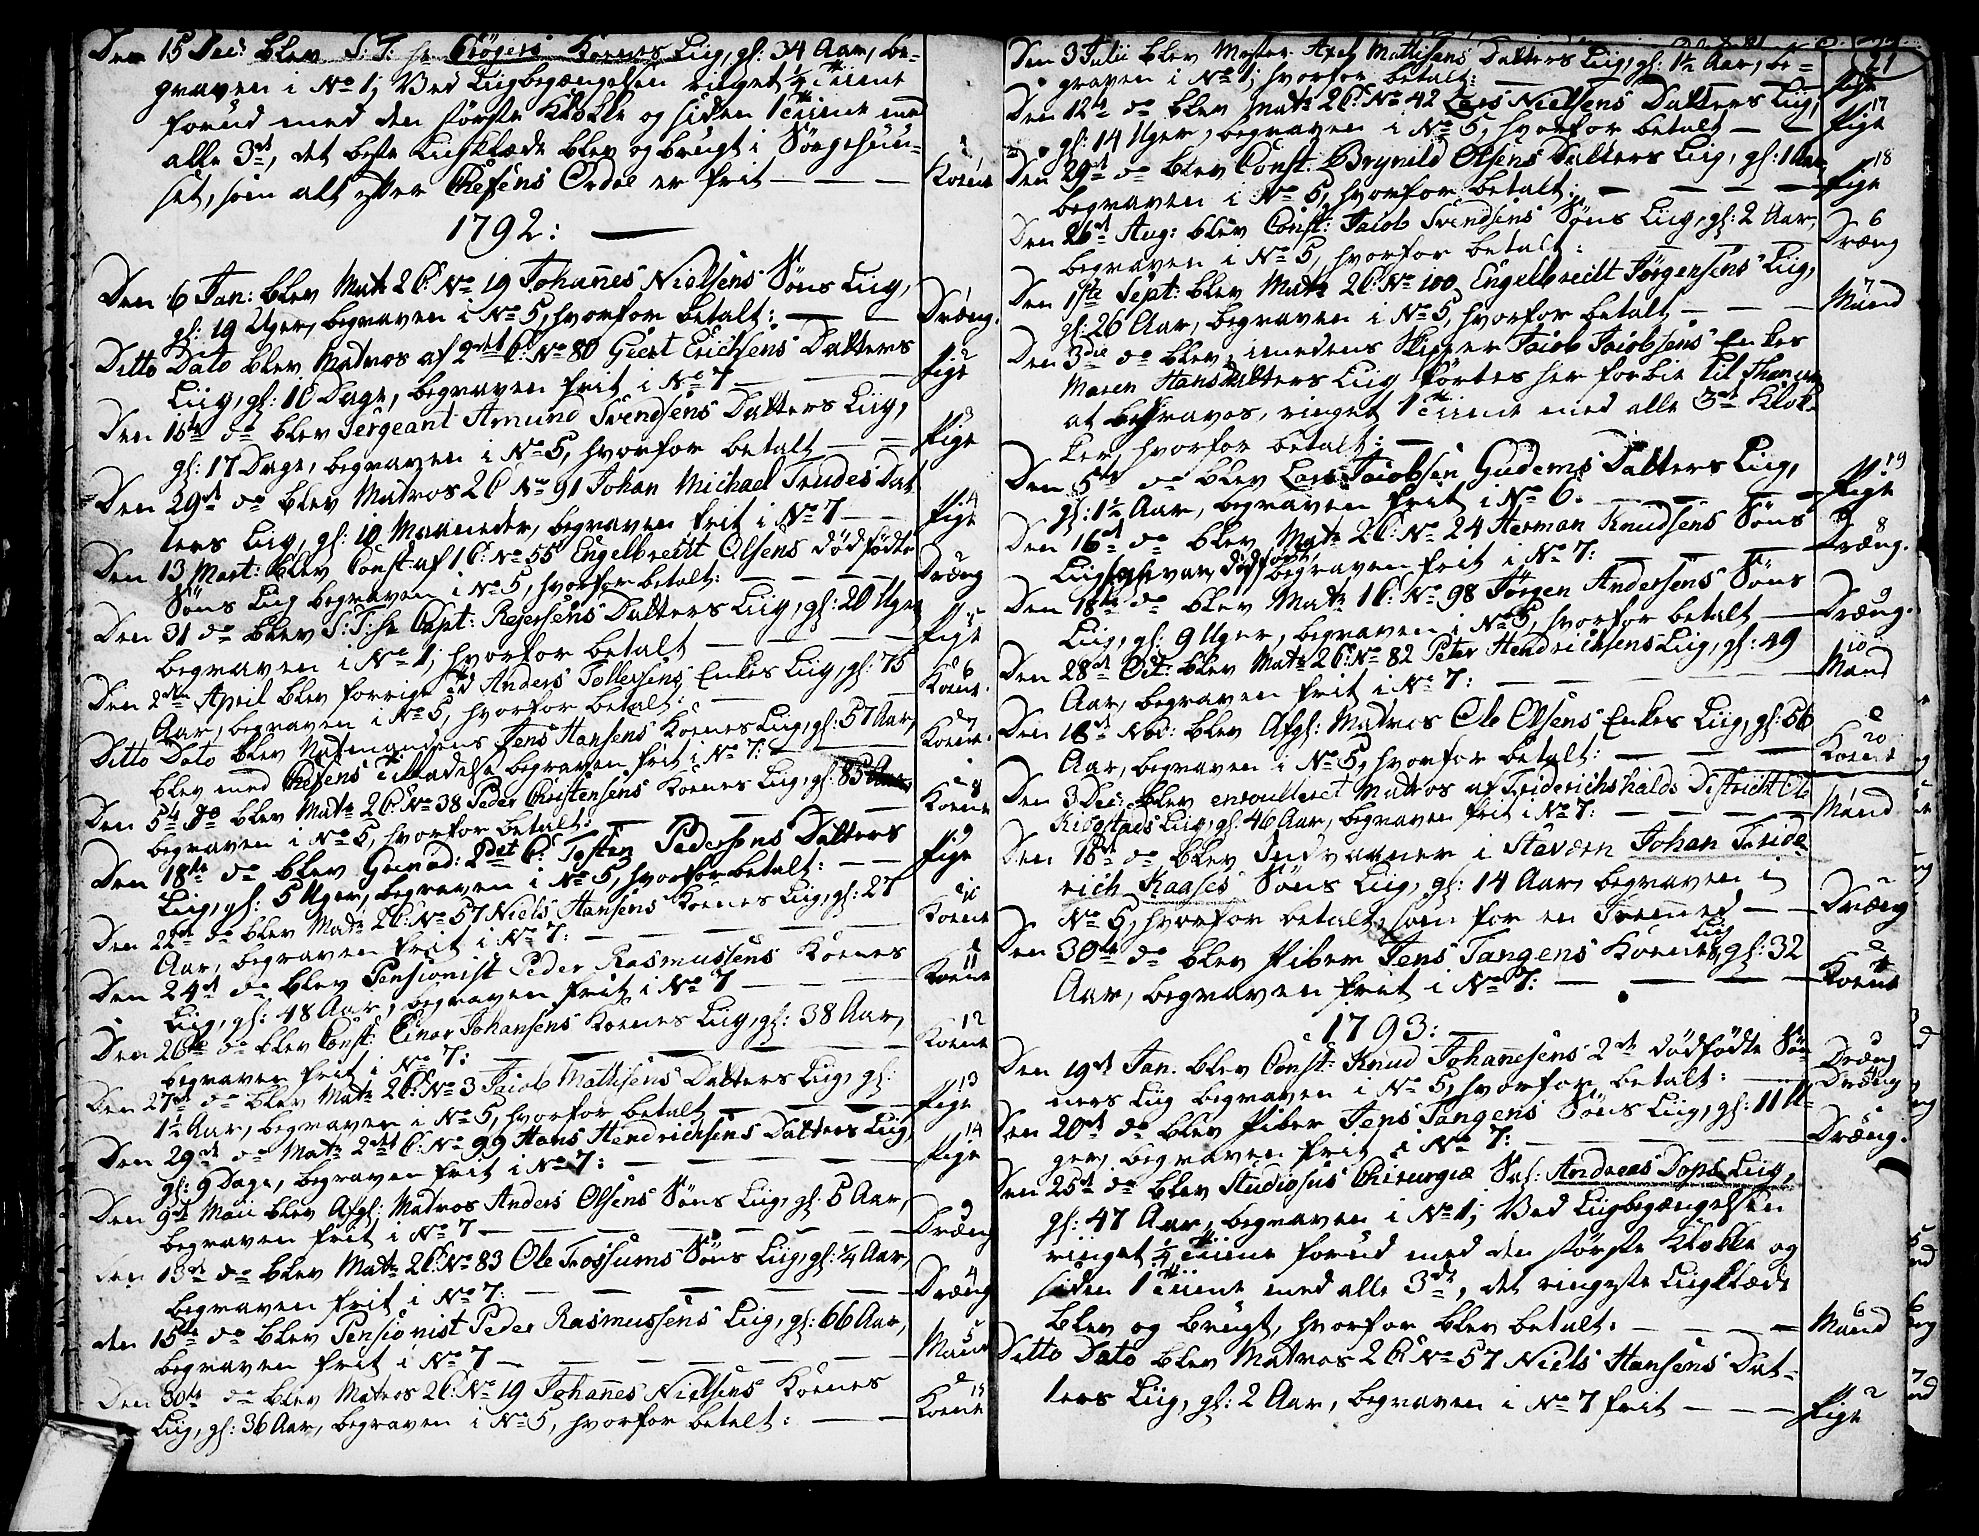 Den 15 Dec: blev S: T: hr Crögers Koenes Liig, gl: 34 Aar, be-
graven i No 1, Ved Liigbegængelsen ringet 1/4 Tiime
forud med den største Klokke og siden 1 Tiime med
alle 3de, det beste Liigklæde blev og brugt i Sörgehuu-
set, som alt efter Chefens Ordre er frit — — — Koene
1792: —
Den 6 Jan: blev Mat: 2 C: No 19 Johannes Nielsens Søns Liig, 1
gl: 19 Uger, begraven i No 5, hvorfor betalt: — — Dræng.
Ditto Dato blev Matros af 2det C: No 80 Geert Erichsens Datters 2
Liig, gl: 10 Dage, begraven frit i No 7 — — — Pige
Den 15de do blev Sergeant Amund Svendsens Datters Liig, 3
gl: 17 Dage, begraven i No 5, hvorfor betalt — — Pige
Den 29de do blev Matros 2 C No 91 Johan Michael Trudes Dat- 4
ters Liig, gl: 10 Maaneder, begraven frit i No 7 — — Pige
Den 13 Mart: blev Const: af 1 C: No 55 Engelbrecht Olsens dødfödte
Søns Liig begraven i No 5, hvorfor betalt: — — — Dræng
Den 31 do blev S: T: hr Capt: Rejersens Datters Liig, gl: 20 Uger, 5
begraven i No 1, hvorfor betalt — — — Pige
Den 2den April blev forrige Anders Tollersens Enkes Liig, gl: 75 6
Aar, begraven i No 5, hvorfor betalt: — — Koene.
Ditto Dato blev Natmandens Jens Hansens Koenes Liig, gl: 57 Aar, 7
blev med Chefens Tilladelse begraven frit i No 7: — Koene.
Den 5te do blev Mat: 2 C: No 38 Peder Christensens Koenes Liig, gl: 85 Aar, 8
begraven i No 5, hvorfor betalt: — — — Koene
Den 18de do blev 2det C: Tosten Pedersens Datters 9
Liig, gl: 5 Uger, begraven i No 5, hvorfor betalt: — — Pige
Den 22de do blev Mat: 2 C: No 57 Niels Hansens Koenes Liig, gl: 27 10
Aar, begraven frit i No 7: — — — Koene
Den 24de do blev Pensionist Peder Rasmussens Koenes 11
Liig, gl: 48 Aar, begraven frit i No 7 — — — Koene
Den 26de do blev Const: Einar Johansens Koenes Liig, gl: 38 Aar, 12
begraven frit i No 7: — — — Koene
Den 27de do blev Mat: 2 C: No 3 Jacob Mathisens Datters Liig, gl: 13
1 1/2 Aar, begraven i No 5, hvorfor betalt — — — Pige
Den 29de do Mat: 2det C: No 99 Hans Hendrichsens Datters Liig, 14
gl: 9 Dage, begraven frit i No 7: — — — Pige
Den 9de Maii blev Afgl: Matros Anders Olsens Søns Liig, gl: 5 Aar,
begraven frit i No 7 — — — Dræng
Den 13de do blev Mat: 2 C: No 83 Ole Trossums Søns Liig, gl: 1/4 Aar, 4
begraven frit i No 7: — — — Dræng
den 15de do blev Pensionist Peder Rasmussens Liig, gl: 66 Aar, 5
begraven frit i No 7 — — — Mand
Den 30te do blev Matros 2 C: No 19 Johannes Nielsens Koenes 15
Liig, gl: 36 Aar, begraven i No 5, hvorfor betalt: — — Koene
21
Den 3 Julii blev Mester Axel Mathisens Datters Liig, gl: 1 1/2 Aar, be-
graven i No 1, hvorfor betalt: — — Pige
Den 12te do blev Mat: 2 C: No 42 Lars Nielsens Datters Liig, 17
gl: 14 Uger, begraven i No 5, hvorfor betalt — — Pige
Den 29de do blev Const: Brynild Olsens Datters Liig, gl: 1 Aar, 18
begraven i No 5, hvorfor betalt: — — — Pige
Den 26de Aug: blev Const: Jacob Svendsens Søns Liig, gl: 2 Aar, 6
begraven i No 5, hvorfor betalt: — — — Dræng
Den 1ste Sept: blev Mat: 2 C: No 100 Engelbrecht Jörgensens Liig,
gl: 26 Aar, begraven i No 5, hvorfor betalt — — — Mand
Den 3die do blev, imedens Skipper Jacob Jacobsens Enkes
Maren Hansdatters Liig førtes her forbie til
at begraves, ringet 1 Tiime med alle 3de Klok-
ker, hvorfor betalt: —
Den 5te do blev Lars Jacobsen Gudems Datters Liig, 19
gl: 1 1/2 Aar, begraven frit i No 6. — — — Pige
Den 16de do blev Mat: 2 C: No 24 Herman Knudsens Søns 8
Liig, som var dødfödt, begraven frit i No 7: — — Dræng.
Den 18de do blev Mat: 1 C: No 98 Jörgen Andersens Søns 9
Liig, gl: 9 Uger, begraven i No 5, hvorfor betalt — Dræng.
Den 28de Oct: blev Mat: 2 C: No 82 Peter Hendrichsens Liig, gl: 49 10
Aar, begraven frit i No 7: — — — Mand
Den 18de Nov: blev Afgl: Matros Ole Olsens Enkes Liig, gl: 56 20
Aar, begraven i No 5, hvorfor betalt: — — — Koene
Den 3 Dec: blev enroulleret Matros af Friderichshalds District Ole
Liig, gl: 46 Aar, begraven frit i No 7: — — — Mand
Den 15de do blev Indvaaner i Stavern Johan Fride-
rich Kaases Søns Liig, gl: 14 Aar, begraven i
No 5, hvorfor betalt, som for en Fremmed — — Dræng
Den 30te do blev Piber Jens Tangens Koenes Liig, gl: 32
Aar, begraven frit i No 7: — — — Koene
1793: —
Den 19de Jan. blev Const: Knud Johannesens 2de dødfödte Søn- Dræng
ners Liig begraven i No 5, hvorfor betalt: — Dræng 4
Den 20de do blev Piber Jens Tangens Søns Liig, gl: 11 U- 5
ger, begraven frit i No 7: — — — Dræng.
Den 25de do blev Studiosus Chirurgiæ Sal: Andreas Dops Liig,
gl: 47 Aar, begraven i No 1, Ved Liigbegængelsen
ringet 1/4 Tiime forud med den største Klokke og
siden 1 Tiime med alle 3de, det ringeste Liigklæde 6
blev og brugt, hvorfor blev betalt. — — Mand
Ditto Dato blev Matros 2 C: No 57 Niels Hansens Dat-
ters Liig, gl: 2 Aar, begraven i No 7 frit — — — Pige 2